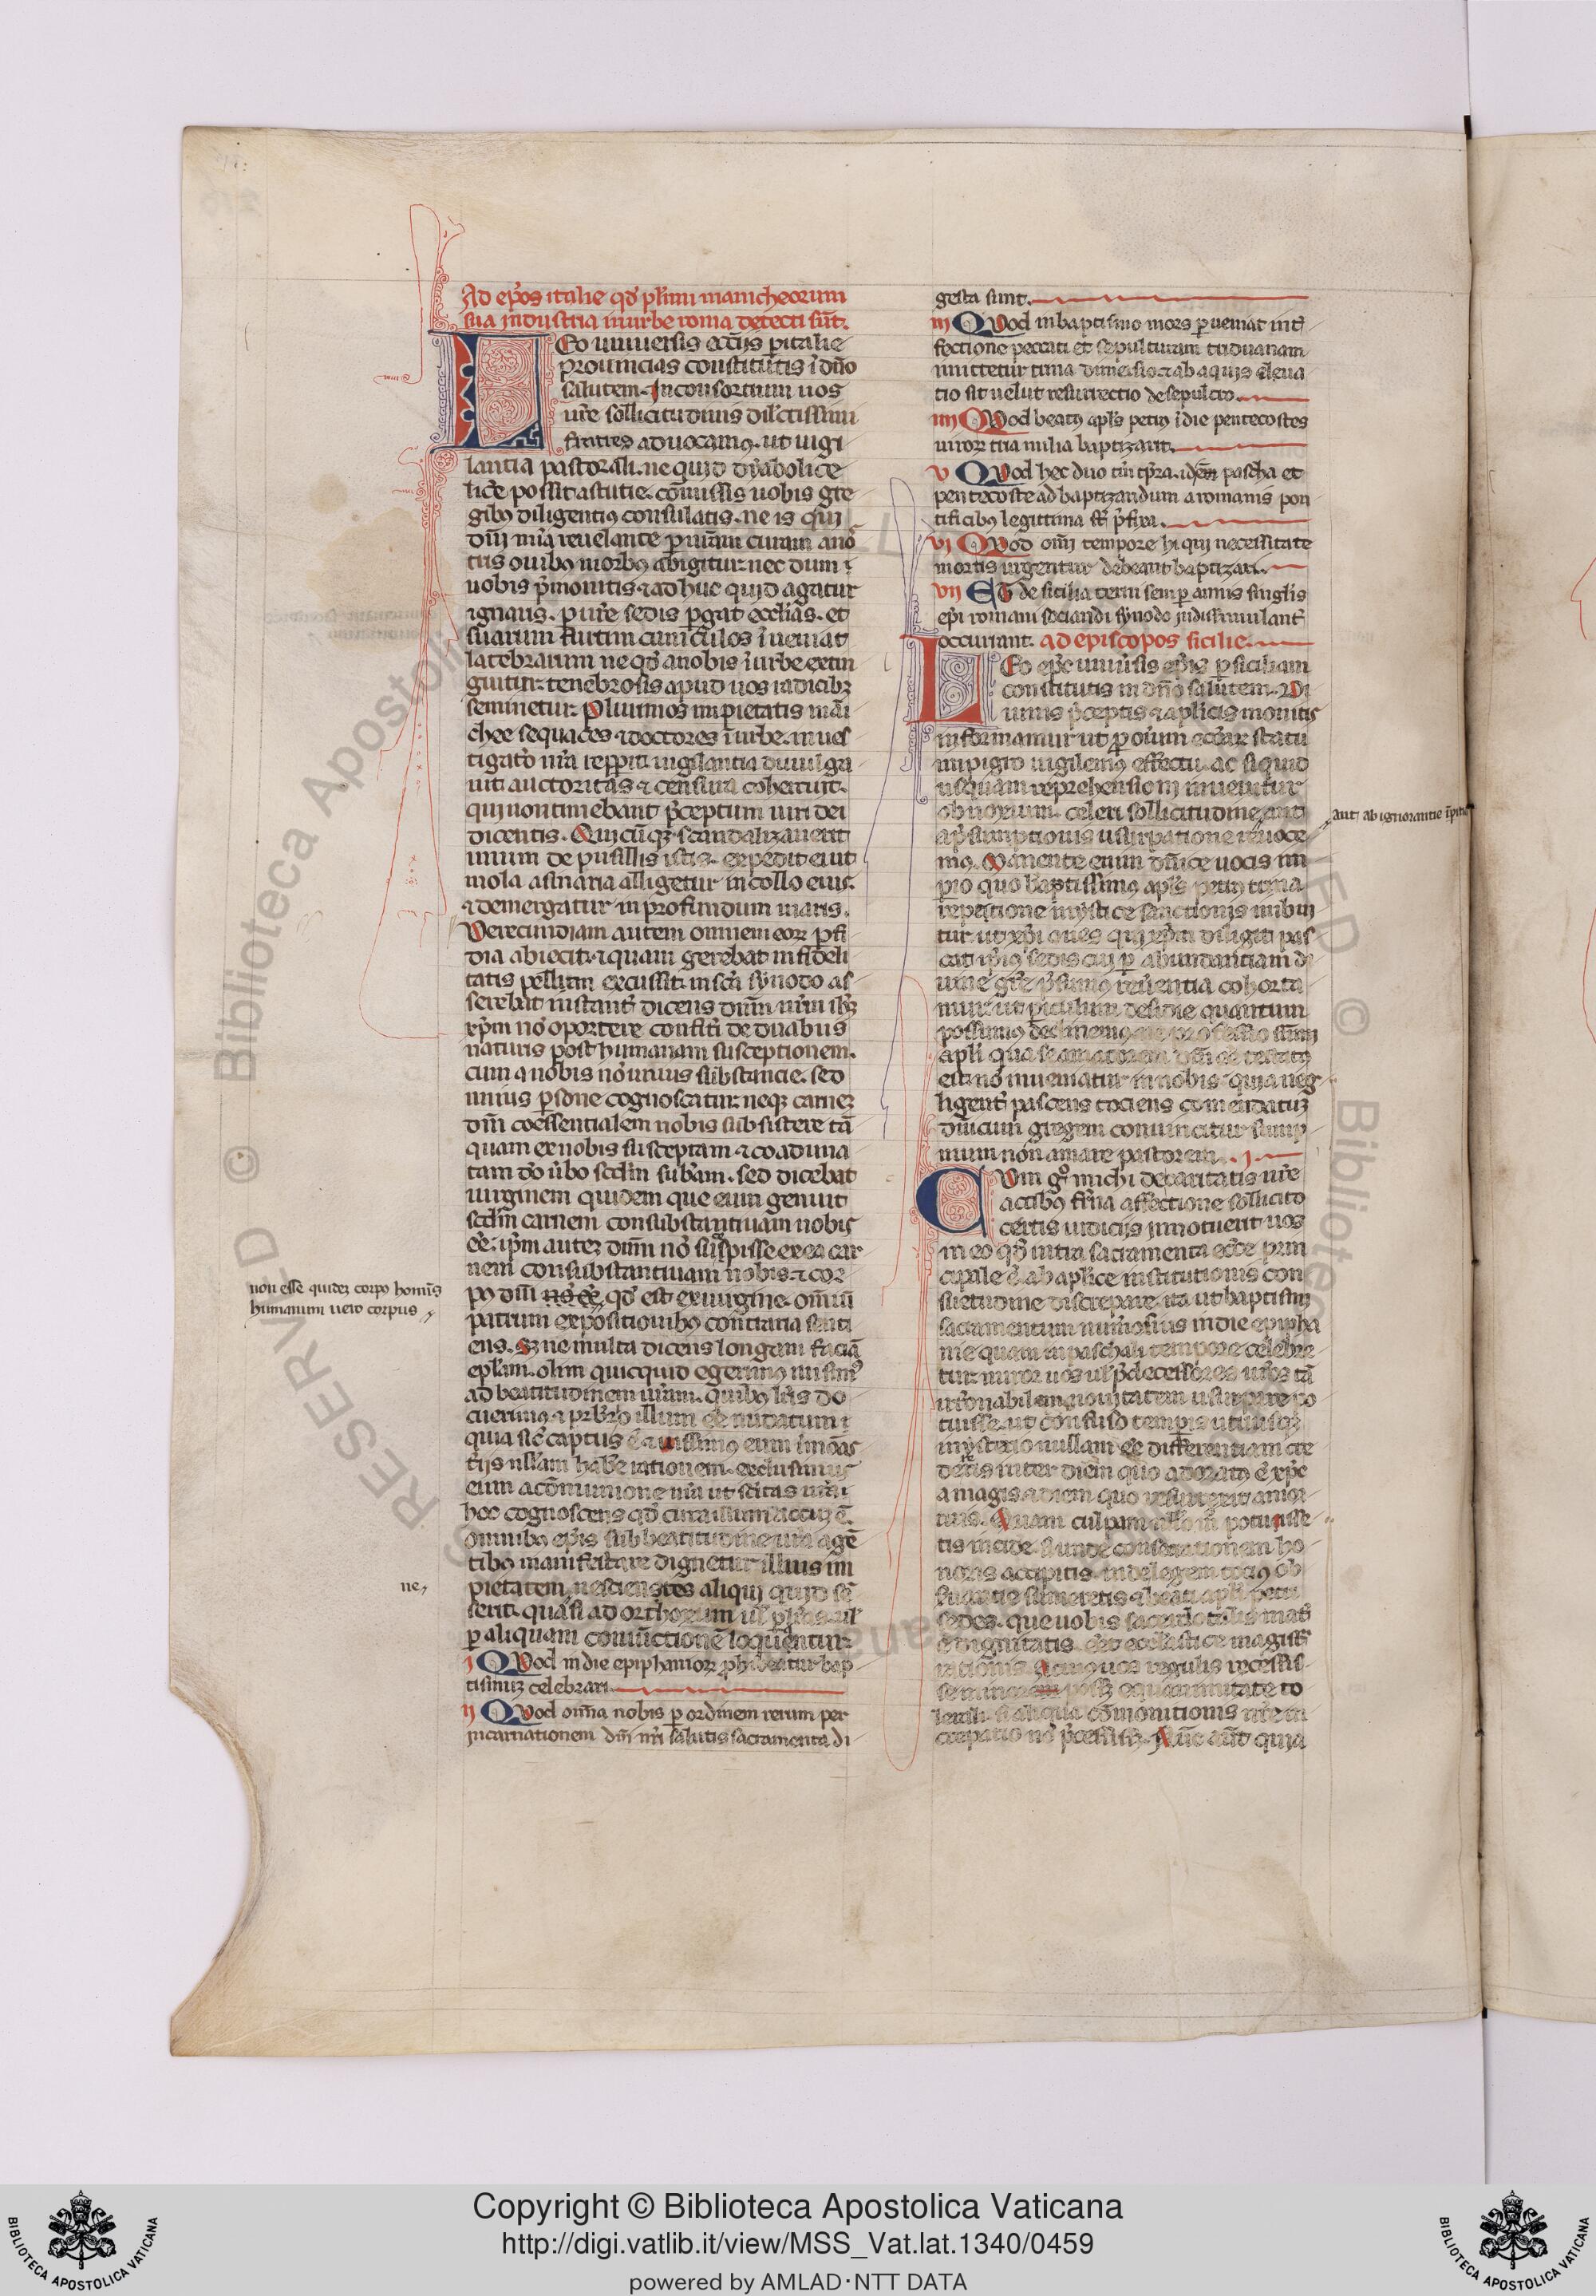 Ad ep̃os italie qd̓ pl̓imi manicheorum
sua industria in urbe roma detecti sũt.
LEo uniuersis ecc̃ijs p italie
prouincias constitutis ĩ dño
salutem. In consortium uos
nr̃e sollicitudinis dil̓ctissimi
fratres aduocamꝰ. ut uigi
lantia pastorali. ne quid dyabolice
lice possit astutie. cõmissis uobis gre
gibꝰ diligentiꝰ consulatis. ne is qui
dñi mĩa reuelante
tris ouibꝰ morbꝰ abigitur. nec dum ĩ
uobis p̃monitis ⁊ ad huc quid agatur
ignaris. p ur̃e sedis pgat ecclias. et
suarum furtim cuniculos ĩueniat
latebrarum ne qd̓ a nobis ĩ urbe extin
guitur. tenebrosis apud uos radicibꝫ
seminetur. Plurimos impietatis mãi
chee sequaces ⁊ doctores ĩ urbe. inues
tigatõ nr̃a repperit. uigilantia diuulga
uit. auctoritas ⁊ censura cohercuit.
qui non timebant p̃ceptum
dicentis. Quicũqꝫ scandalizauerit
unum de pusillis istis. expedit ei ut
mola asinaria alligetur in collo eius.
⁊ demergatur in profundum maris.
Verecundiam autem omnem eoꝝ pfi
dia abiecit. ⁊ quam gerebat infideli
tatis pellem excussit. in sc̃a synodo as
serebat instant̓ dicens dñm nr̃m ihꝫ
xp̃m nõ oportere confiteri de duabus
naturis post humanam susceptionem.
cum a nobis nõ unius substancie. sed
unius psone cognoscatur. neqꝫ carneꝫ
dñi coessentialem nobis subsistere tã
quam ex nobis susceptam ⁊ coaduna
tam dõ ũbo scdm̃ sub̃am. sed dicebat
uirginem quidem que eum genuit
scdm̃ carnem consubstantiuam nobis
eẽ. ip̃m auteꝫ dñm nõ suscepisse ex ea car
nem consubstantiuam nobis. ⁊ cor
pꝰ dñi nõ eẽ. qd̓ est ex uirgine. om̃iũ
patrum expositionibꝰ contraria senti
ens. Sꝫ ne multa dicens longam faciã
epl̃am. olim quicquid egerimꝰ misimꝰ
ad beatitudinem ur̃am. quibꝰ lr̃is do
cuerimꝰ ⁊ prb̃ro illum eẽ nudatum ⁊
quia sic captus ẽ
tijs ullam habẽ rationem. exclusimus
eum a cõmunione nr̃a ut scitas ur̃a
hoc cognoscens qd̓ circa illum actũ ẽ.
omnibꝰ ep̃is sub beatitudine ur̃a agẽ
tibꝰ manifestare dignetur illius im
pietatem nescientes aliqui quid sẽ
serit. quasi ad orthoxum ul̓ p lr̃as. ul̓
p aliquam coniũctionẽ loquentur.
I QVod in die epiphanioꝝ phibeatur bap
tismuꝫ celebrari.
II QVod om̃ia nobis p ordinem rerum per
incarnationem dñi nr̃i salutis sacramenta di
non esse quideꝫ corpꝰ homĩs
humanum uero corpus
ne
gesta sunt.
III QVod in baptismo mors pueniat int̓
fectione peccati et sepulturam triduanam
imittetur trina dimersio ⁊ ab aquis eleua
tio sit uelut resurrectio de sepulcro.
IIII QVod beatꝰ apls̃ petrꝰ ĩ die pentecostes
uiroꝝ tria milia baptizarit.
V QVod hec duo tm̃ tp̃ra. idẽ pascha et
pentecoste ad baptizandum a romanis pon
tificibꝰ legittima sũt p̃fixa.
VI QVod om̃i tempore hi qui necessitate
mortis urgentur debeant baptizari.
VII ET de sicilia terni semp annis singl̓is
ep̃i romani sociandi synodo indissimulant̓
occurrant. ad episcopos sicilie.
LEo ep̃c uniũsis ep̃is p siciliam
constitutis in dño salutem. Di
uinis p̃ceptis ⁊ ap̃licis monitis
informamur ut p oĩum eccl̃iaꝝ statu
impigro uigilemꝰ effectu. ac si quid
usquam reprehensioni inuenitur
obnoxium. celeri sollicitudine aut
a p̃sumptionis usurpatione reuoce
mꝰ. Manente enim dñice uocis im
pio quo beatissimꝰ apls̃ petrꝰ trina
repetitione mystice sanctionis imbui
tur. ut xp̃i oues qui xp̃m diligit pas
cat ip̃iꝰ sedis cui p abundantiam di
uine gr̃e p̃sumꝰ reũentia cohorta
mur. ut piculum desidie quantum
possumꝰ declinemꝰ. ne professio sum̃i
apl̃i qua se amatorem
est. nõ inueniatur in nobis. quia neg
ligent̓ pascens tociens comendatuꝫ
dñicum gregem conuincitur sum
mum non amare pastorem. I.
CVm gͦ michi de caritatis ur̃e
actibꝰ fr̃na affectione sollicito
certis indicijs innotuerit uos
in eo qd̓ intra sacramenta eccl̃e prin
cipale ẽ ab aplice institutionis con
suetudine discrepare. ita ut baptismi
sacramentum num̓osius in die epipha
nie quam in paschali tempore celebre
tur. miror uos ul̓ p̃decessores ur̃os tã
irrõnabilem nouitatem usurpare po
tuisse. ut confuso tempis utriusqꝫ
mysterio nullam eẽ differentiam cre
deretis inter diem quo adoratꝰ ẽ xp̃c
a magis. ⁊ diem quo resurrexit a mor
tuis. Quam culpam ullo mõ potuisse
tis incidẽ. si unde consecrationem ho
noris accipitis. inde legem tociꝰ ob
seruantie sumeretis ⁊ beati apl̃i petri
sedes. que uobis sacerdotalis mat̓
ẽ dignitatis. eẽt ecclastice magist̓
rationis. Acinquos regulis recessis
se minorem posse equanimitate to
lerari. si aliqua cõmonitionis nr̃e in
crepatio nõ p̃cessissꝫ. Nũc aut̃ quia
aut ab ignorantie ĩpitia
Copyright © Biblioteca Apostolica Vaticana
http://digi.vatlib.it/view/MSS_Vat.lat.1340/0459
powered by AMLAD·NTT DATA
BIBLIOTECA APOSTOLICA VATICANA
BIBLIOTECA APOSTOLICA VATICANA